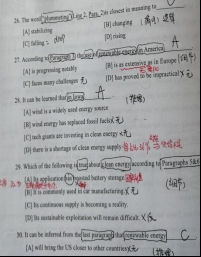 26. The word "plummeting" (Line 2, Para. 2) is closest in meaning to
[A] stabilizing [B] changing
[C] falling [D] rising
27. According to Paragraph 3, the use of renewable energy in America A
[A] is progressing notably [B] is as extensive as in Europe
[C] faces many challenges 无 [D] has proved to be impractical 无
28. It can be learned that in Iowa, A
[A] wind is a widely used energy source
[B] wind energy has replaced fossil fuels
[C] tech giants are investing in clean energy
[D] there is a shortage of clean energy supply
29. Which of the following is true about clean energy according to Paragraphs 5&6
[A] Its application has boosted battery storage
[B] It is commonly used in car manufacturing 无
[C] Its continuous supply is becoming a reality.
[D] Its sustainable exploitation will remain difficult.
30. It can be inferred from the last paragraph that renewable energy C
[A] will bring the US closer to other countries